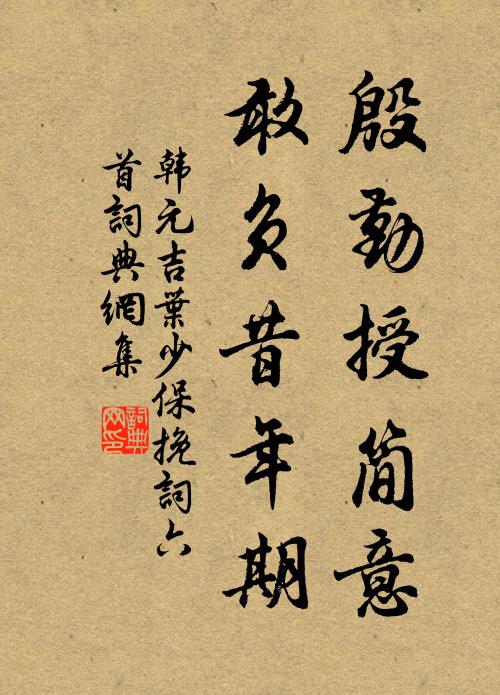 殷勤授简意
敢负昔年期
韩元吉葉少保挽詞六
首詞典網集
詞典网印